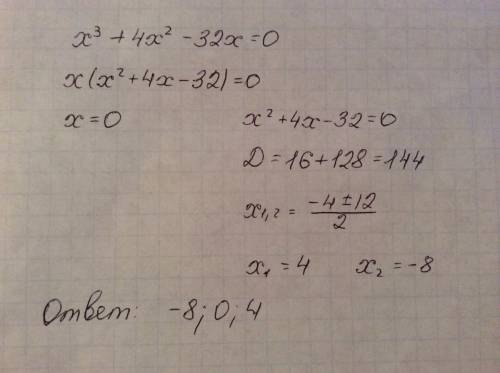 x³ + 4x² - 32x = 0
x(x² + 4x - 32) = 0
x = 0 x² + 4x - 32 = 0
Д = 16 + 128 = 144
x₁,₂ = (-4 ± 12)/2
x₁ = 4 x₂ = -8
Ответ: -8; 0; 4